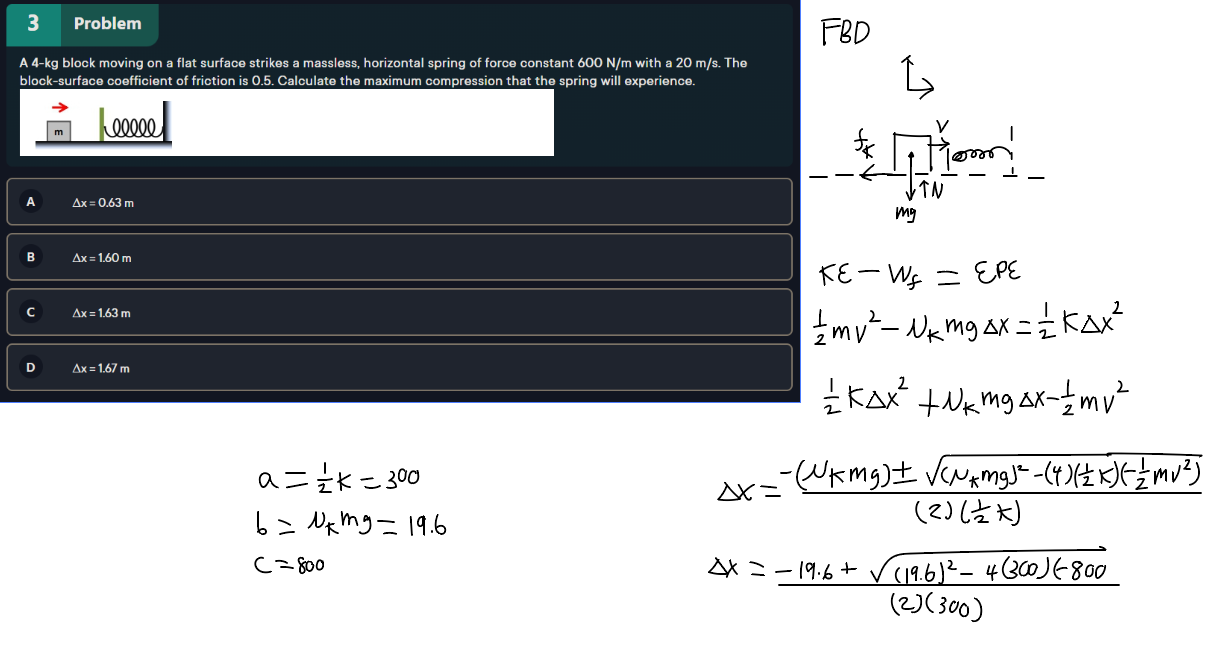 3 Problem
A 4-kg block moving on a flat surface strikes a massless, horizontal spring of force constant 600 N/m with a 20 m/s. The
block-surface coefficient of friction is 0.5. Calculate the maximum compression that the spring will experience.
m
A Δx = 0.63 m
B Δx = 1.60 m
C Δx = 1.63 m
D Δx = 1.67 m
FBD
fK
V
N
mg
KE - Wf = EPE
1/2 mv² - μK mg Δx = 1/2 KΔx²
1/2 KΔx² + μK mg Δx - 1/2 mv²
a = 1/2 K = 300
b = μK mg = 19.6
C = 800
Δx = -(μK mg) ± √(μK mg)² - (4)(1/2 K)(-1/2 mv²) / (2)(1/2 K)
Δx = -19.6 + √(19.6)² - 4(300)(-800 / (2)(300)